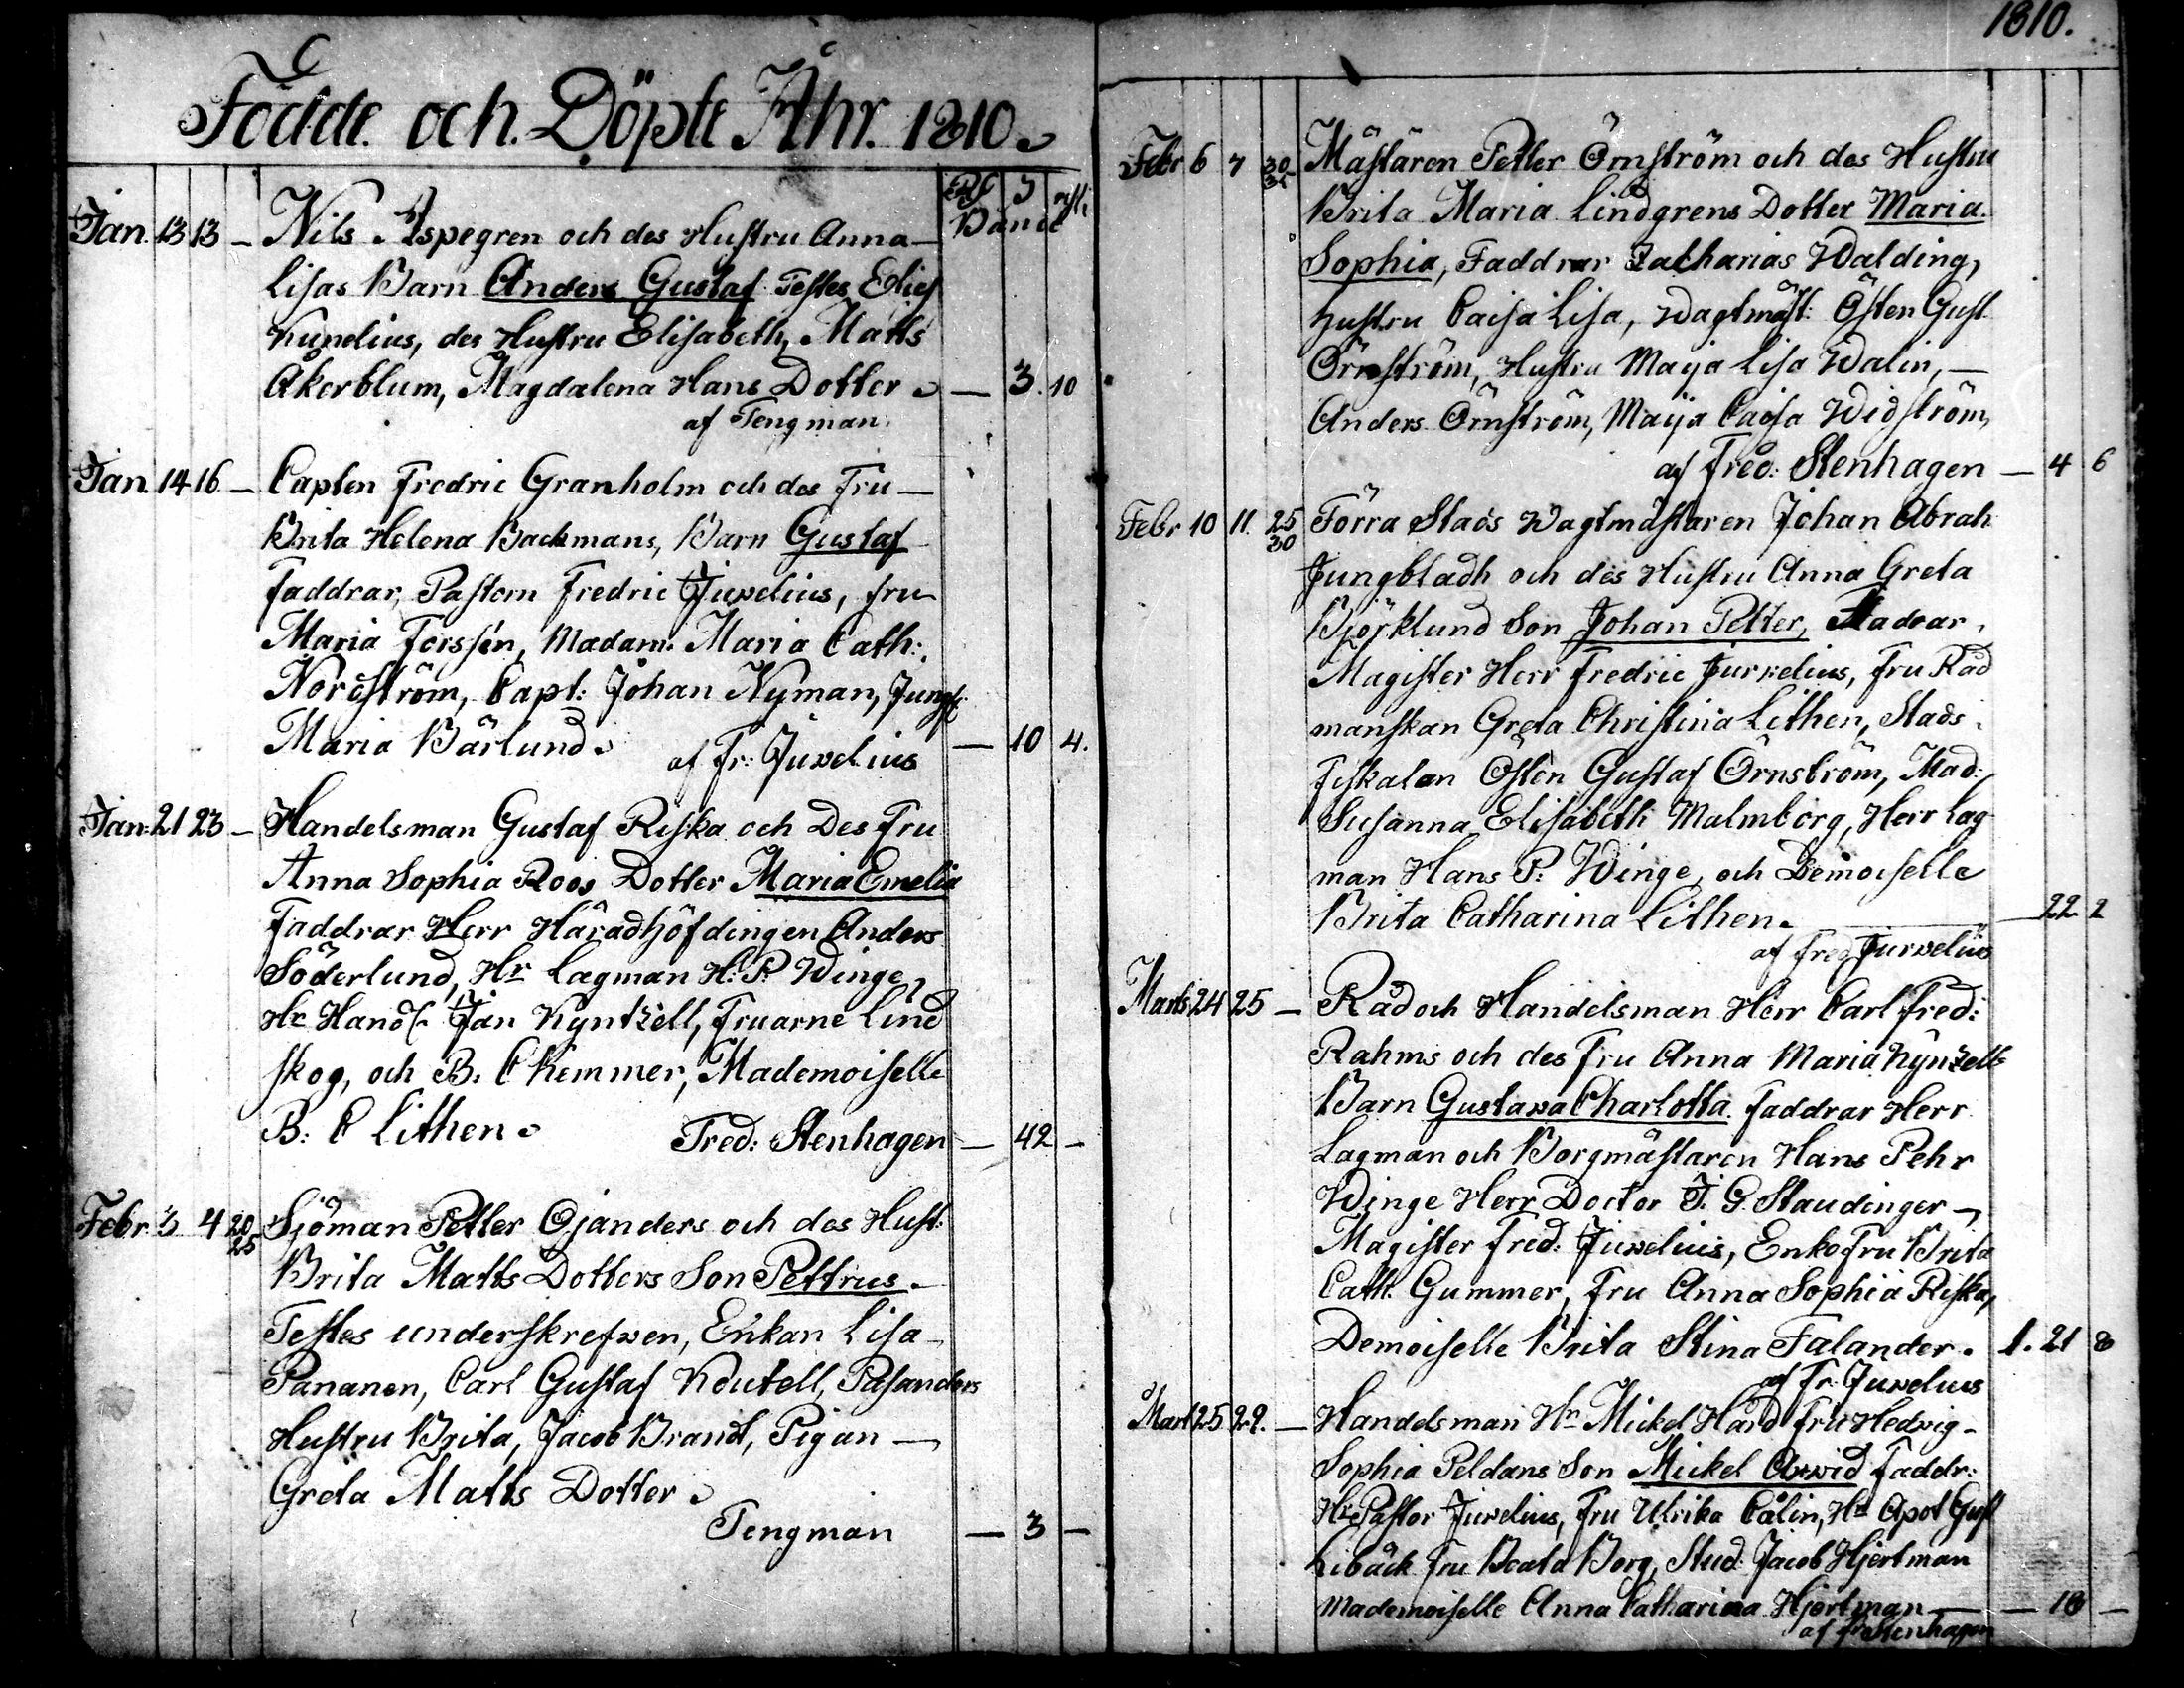 Födde och Döpte Åhr. 1810.
Banco
Jan. 13 13 – Nils Aspegren och des Hustru Anna –
Lisas Barn Anders Gustaf Testes Elies
Kunelius, des Hustru Elisabeth, Matts
Åkerblum, Magdalena Hans Dotter. — 3. 10
af Tengman.
Jan. 14 16 – Capten Fredric Granholm och des Fru –
Brita Helena Backmans, Barn Gustaf
Faddrar, Pastorn Fredric Juvelius, fru
Maria Forssén, Madam. Maria Cath:
Nordström, Capt: Johan Nyman, Jungf:
Maria Bärlund. — 10 4.
af Fr: Juvelius
Jan: 21 23 – Handelsman Gustaf Riska och Des Fru
Anna Sophia Roos Dotter Maria Emelia
Faddrar Herr Häradhöfdingen Anders
Söderlund, Hr Lagman H: P: Winge,
Hr Handl. Jan Kyntzell, Fruarne Lind
skog, och B. C Kemmer, Mademoiselle
B: C Lithen. Fred: Stenhagen — 42 –
Febr 3 4 20 25 Sjöman Petter Ojanders och des Hust:
Brita Matts Dotters Son Pettrus –
Testes underskrefwen, Enkan Lisa –
Pananen, Carl Gustaf Keutell, Pasanders
Hustru Brita, Jacob Brandt, Pigan —
Greta Matts Dotter.
Tengman — 3 –
1810.
Febr 6 7 30 Mästaren Petter Örnström och des Hustru
Brita Maria Lindgrens Dotter Maria
Sophia, Faddrar Zacharias Walding,
hustru Caisa Lisa, Wagtmäst: Östen Gust
Örnström, Hustru Maija Lisa Walin, —
Anders Örnström, Maija Caisa Widström,
af Fred: Stenhagen — 4 6
Febr 10 11. 25 30 Förra Stads Wagtmästaren Johan Abrah
Jungbladh och des Hustru Anna Greta
Björklund Son Johan Petter, Fadrar,
Magister Herr Fredric Juvelius, Fru Råd
manskan Greta Christina Lithen, Stads
fiskalen Östen Gustaf Örnström, Mad:
Susanna Elisabeth Malmborg, Herr Lag
man Hans P: Winge, och Demoiselle
Brita Catharina Lithen. — 22 2
af Fred Juvelius
Marts 24 25 – Råd och Handelsman Herr Carl Fred:
Rahms och des Fru Anna Maria Kyntzells
Barn Gustava Charlotta. Faddrar Herr
Lagman och Borgmästaren Hans Pehr
Winge Herr Doctor J. G. Staudinger –
Magister Fred: Juvelius, Enkefru Brita
Cath. Gummer, Fru Anna Sophia Riska,
Demoiselle Brita Stina Falander. 1. 21 8
af Fr. Juvelius
Mart 25 29. – Handelsman Hr Mickel Hård Fru Hedvig –
Sophia Peldans Son Mickel Arvid Faddr:
Hr Pastor Juvelius, Fru Ulrika Calin, Hr Apot Gust
Libäck Fru Beata Borg, Stud: Jacob Hjertman
Mademoiselle Anna Catharina Hjertman — 18 –
af Fr Stenhagen